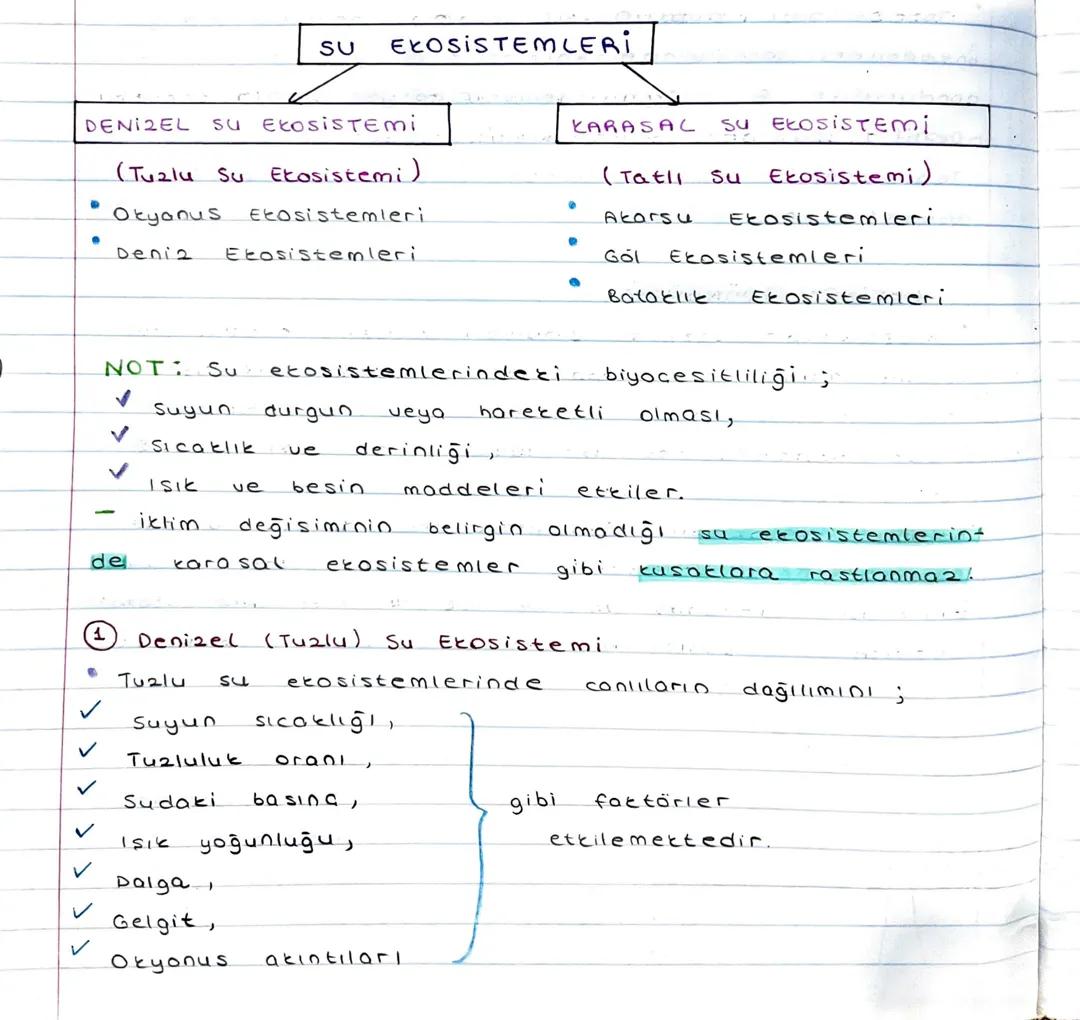 SU EKOSİSTEMLERİ
DENİZEL SU EKOSİSTEMİ
(Tuzlu Su Ekosistemi)
Okyanus Ekosistemleri
Deniz Ekosistemleri
KARASAL SU EKOSİSTEMİ
(Tatlı Su Ekosistemi)
Akarsu Ekosistemleri
Göl Ekosistemleri
Bataklık Ekosistemleri
NOT: Su ekosistemlerindeki biyocesitliliği ;
✓ Suyun durgun veya hareketli olması,
✓ Sıcaklık ve derinliği,
✓ Isık ve besin maddeleri etkiler.
- iklim değisiminin belirgin olmadığı su ekosistemlerin-
de karasal ekosistemler gibi kusaklara rastlanmaz.
① Denizel (Tuzlu) Su Ekosistemi.
• Tuzlu su ekosistemlerinde canlıların dağılımını ;
✓ Suyun sıcaklığı,
✓ Tuzluluk oranı,
✓ Sudaki basınç,
✓ Isık yoğunluğu,
✓ Dalga,
✓ Gelgit,
✓ Okyanus akıntıları
gibi faktörler
etkilemektedir.